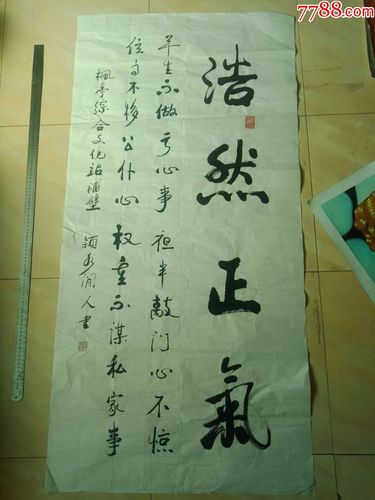 7788.com
中国收藏热线
浩然正氣
平生不做亏心事夜半敲门心不惊
位高不移公仆心权重不谋私家事
楓亭综合文化站補壁 颍水闲人书